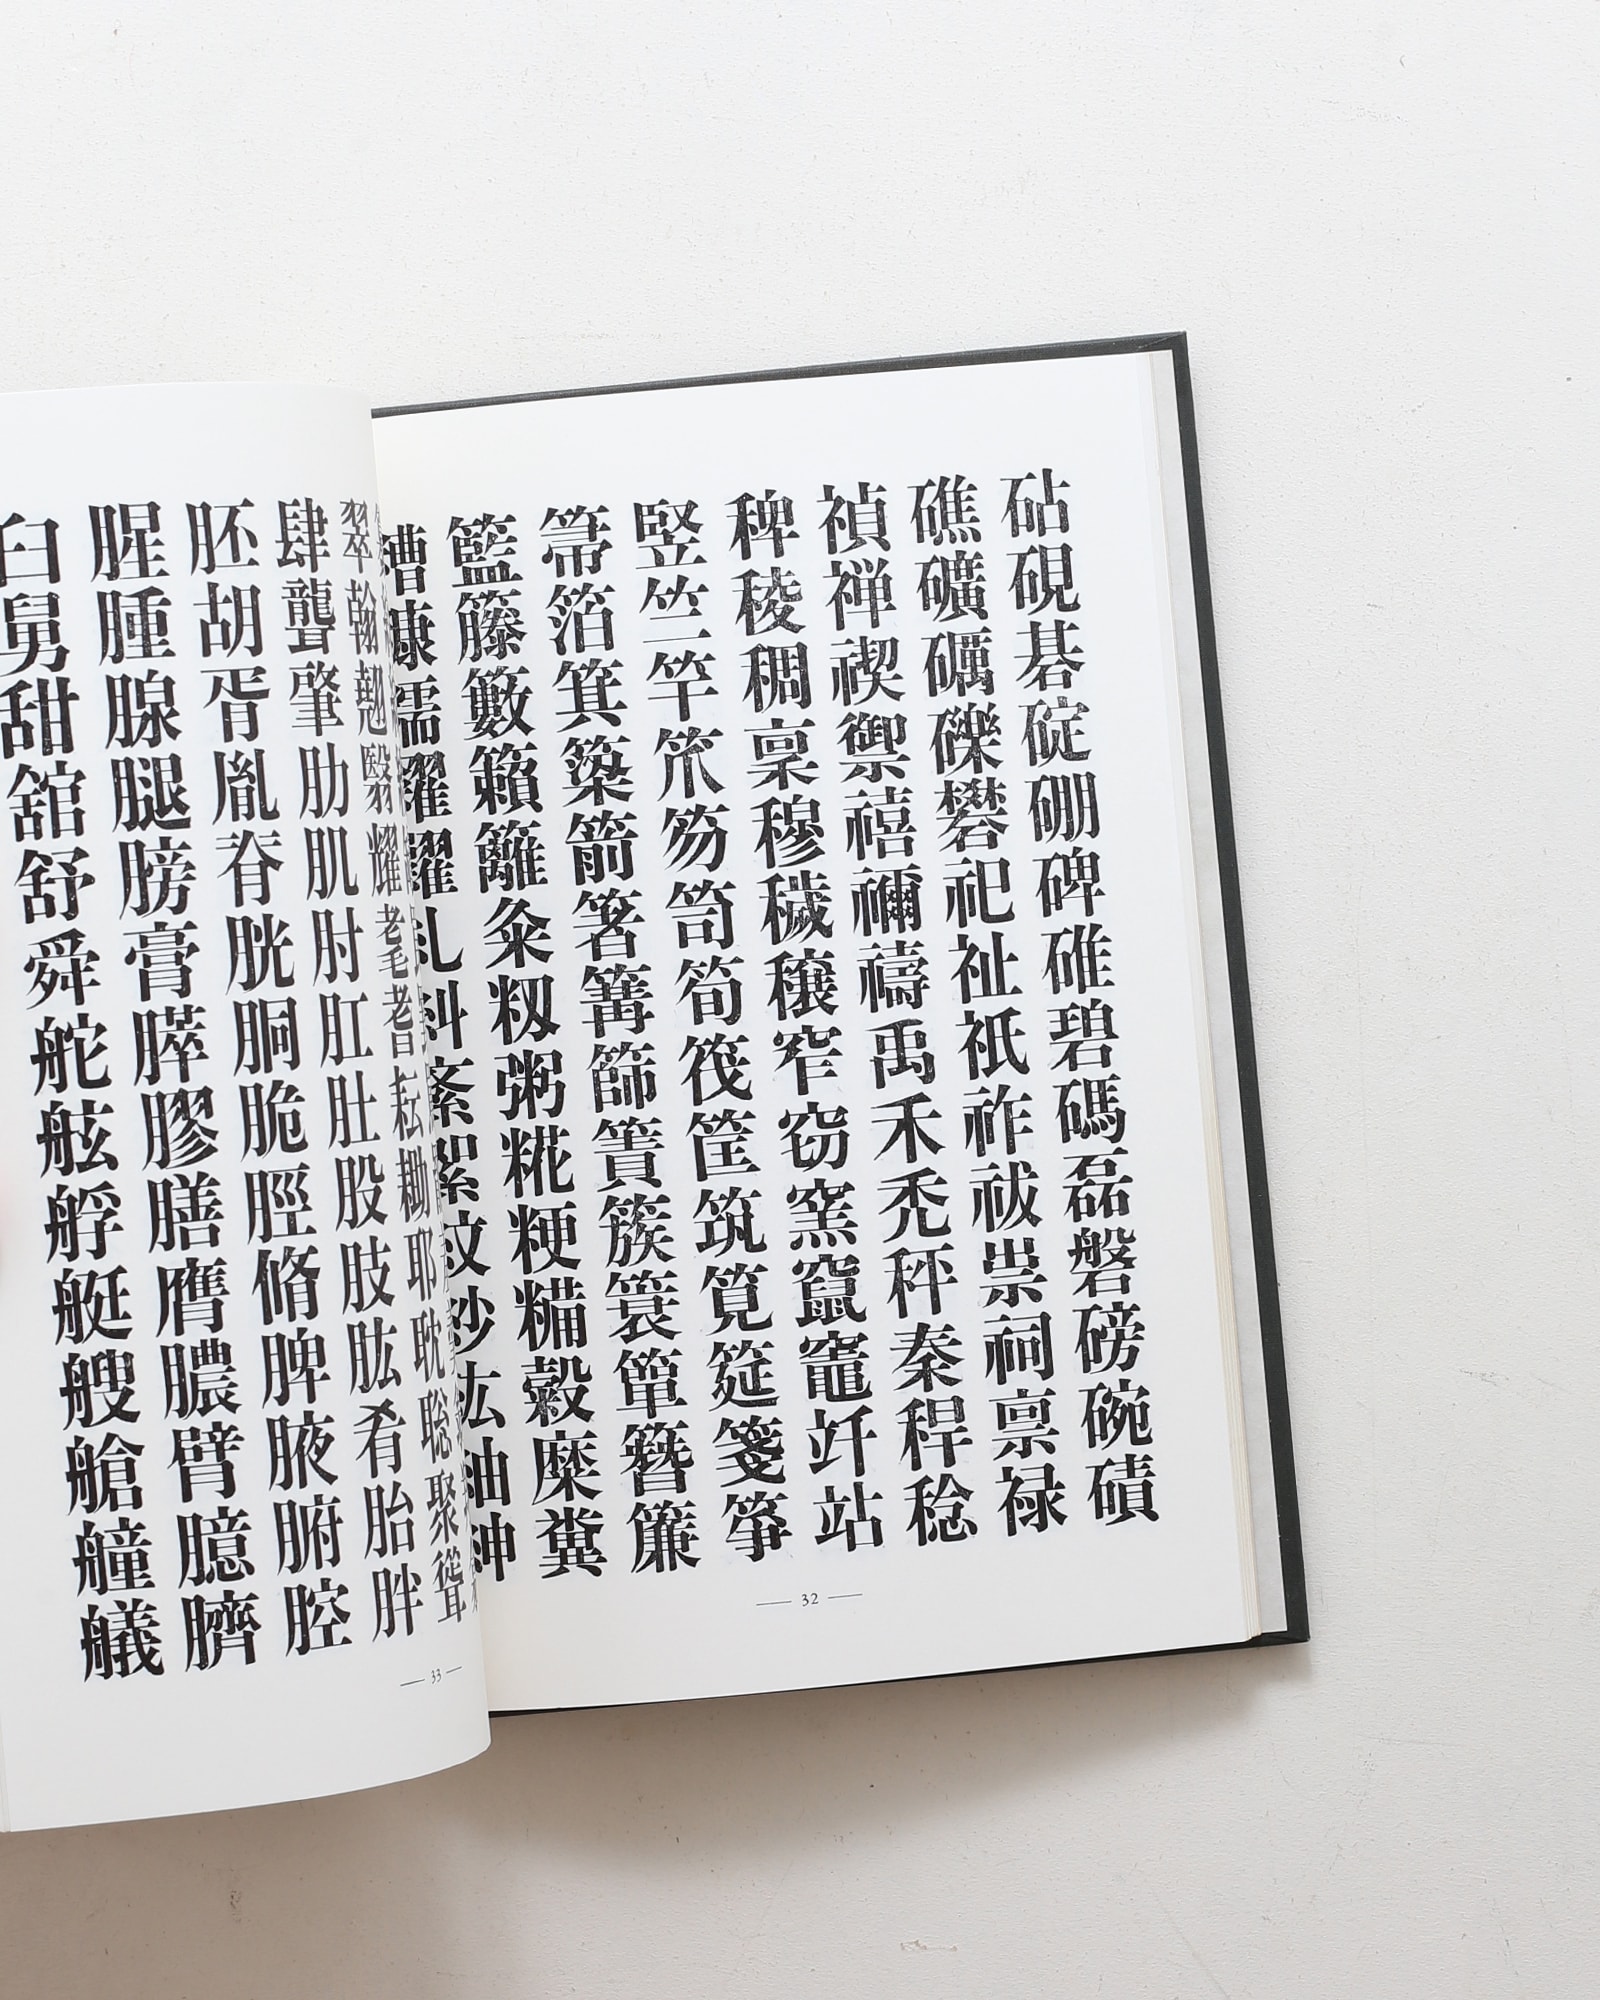 砧硯碁碇硼碑碓碧碼磊磐磅碗磧
礁礦礪礫礬祀祉祇祚祓祟祠禀禄
禎禅禊禦禧禰禱禹禾禿秤秦稈稔
稗稜稠稟穆穢穰窄窃窯竄竈竏站
竪竺竿笊笏笥筍筏筐筑筧筵箋箏
箒箔箕簗箭箸篝篩簀簇簑簞簪簾
籃籐籔籟籬粂籾粥糀粳糒穀糜糞
糟糠糯糶糴糺糾紊絮紋紗紘紬紳
— 32 —
翠翰翹翳耀耄耆耘耡耶耽聡聚聳
肆聾肇肋肌肘肛肚股肢肱肴胎胖
胚胡胥胤脊胱胴脆脛脩脾腋腑腔
腥腫腺腿膀膏膵膠膳膺膿臂臆臍
臼舅甜舘舒舜舵舷艀艇艘艙艟艤
— 33 —